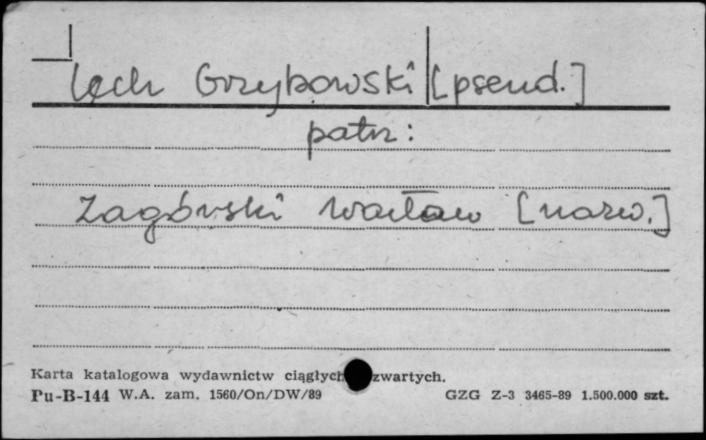 Lech Grzybowski [pseud.]
patrz:
Zagórski Wacław [nazw.]
Karta katalogowa wydawnictw ciągłych zwartych.
Pu-B-144 W.A. zam. 1560/On/DW/89 GZG Z-3 3465-89 1.500.000 szt.